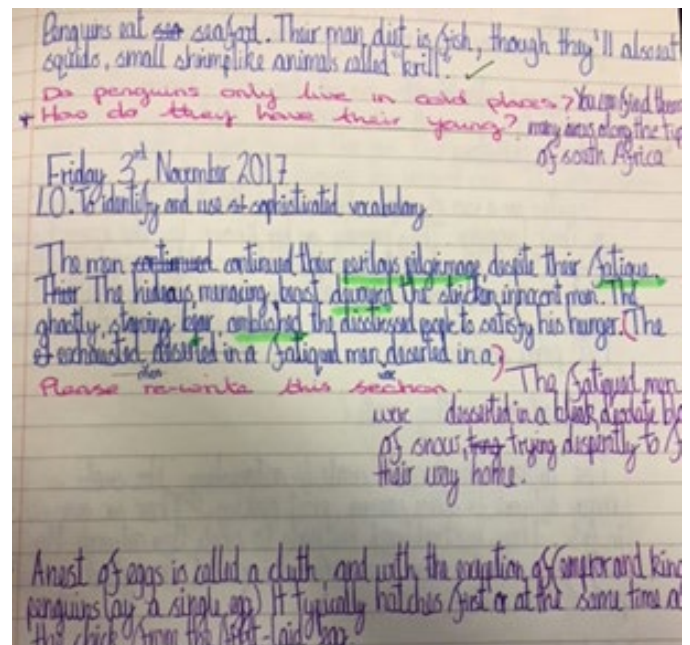 Penguins eat sea seafood. Their man diet is fish, though they'll also eat
squids, small shrimplike animals called "krill". ✓
Do penguins only live in cold places? You can find them
+ How do they have their young? many areas along the tip
of south Africa
Friday 3rd November 2017
LO: To identify and use st sophisticated vocabulary.
The men continued continued their perilays pilgrimage, despite their fatigue.
The hideays, menacing, beast the stricken, innocent man. The
ghastly, starving bear, the disstressed people to satisfy his hunger. (The
exhausted, deserted in a fatigued man deserted in a)
Please re-write this section. The fatigued men
were desserted in a bleak, desolate
of snow, trying dispently to
their way home.
A nest of eggs is called a cluth, and with the exception of (emperor and king
penguins lay a single egg) It typically hatches first or at the same time a
the chick from the first-laid egg.